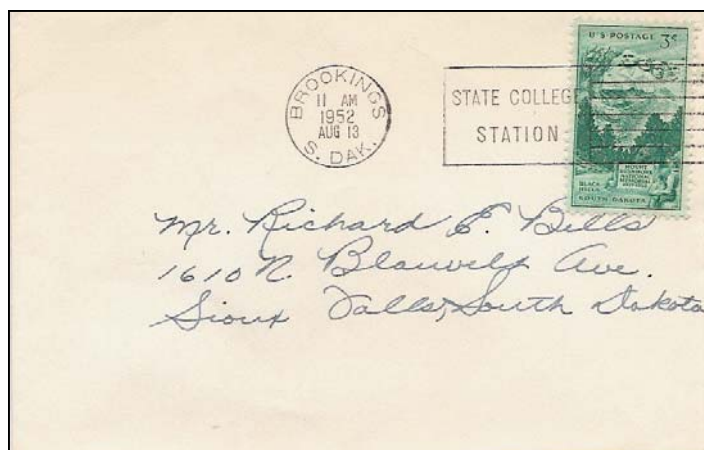 BROOKINGS
11 AM
1952
AUG 13
S. DAK.
STATE COLLEGE
STATION
U S POSTAGE 3¢
MOUNT
RUSHMORE
NATIONAL
MEMORIAL
BLACK
HILLS
SOUTH DAKOTA
Mr. Richard E. Bills
1610 N. Blauvelt Ave.
Sioux Falls, South Dakota